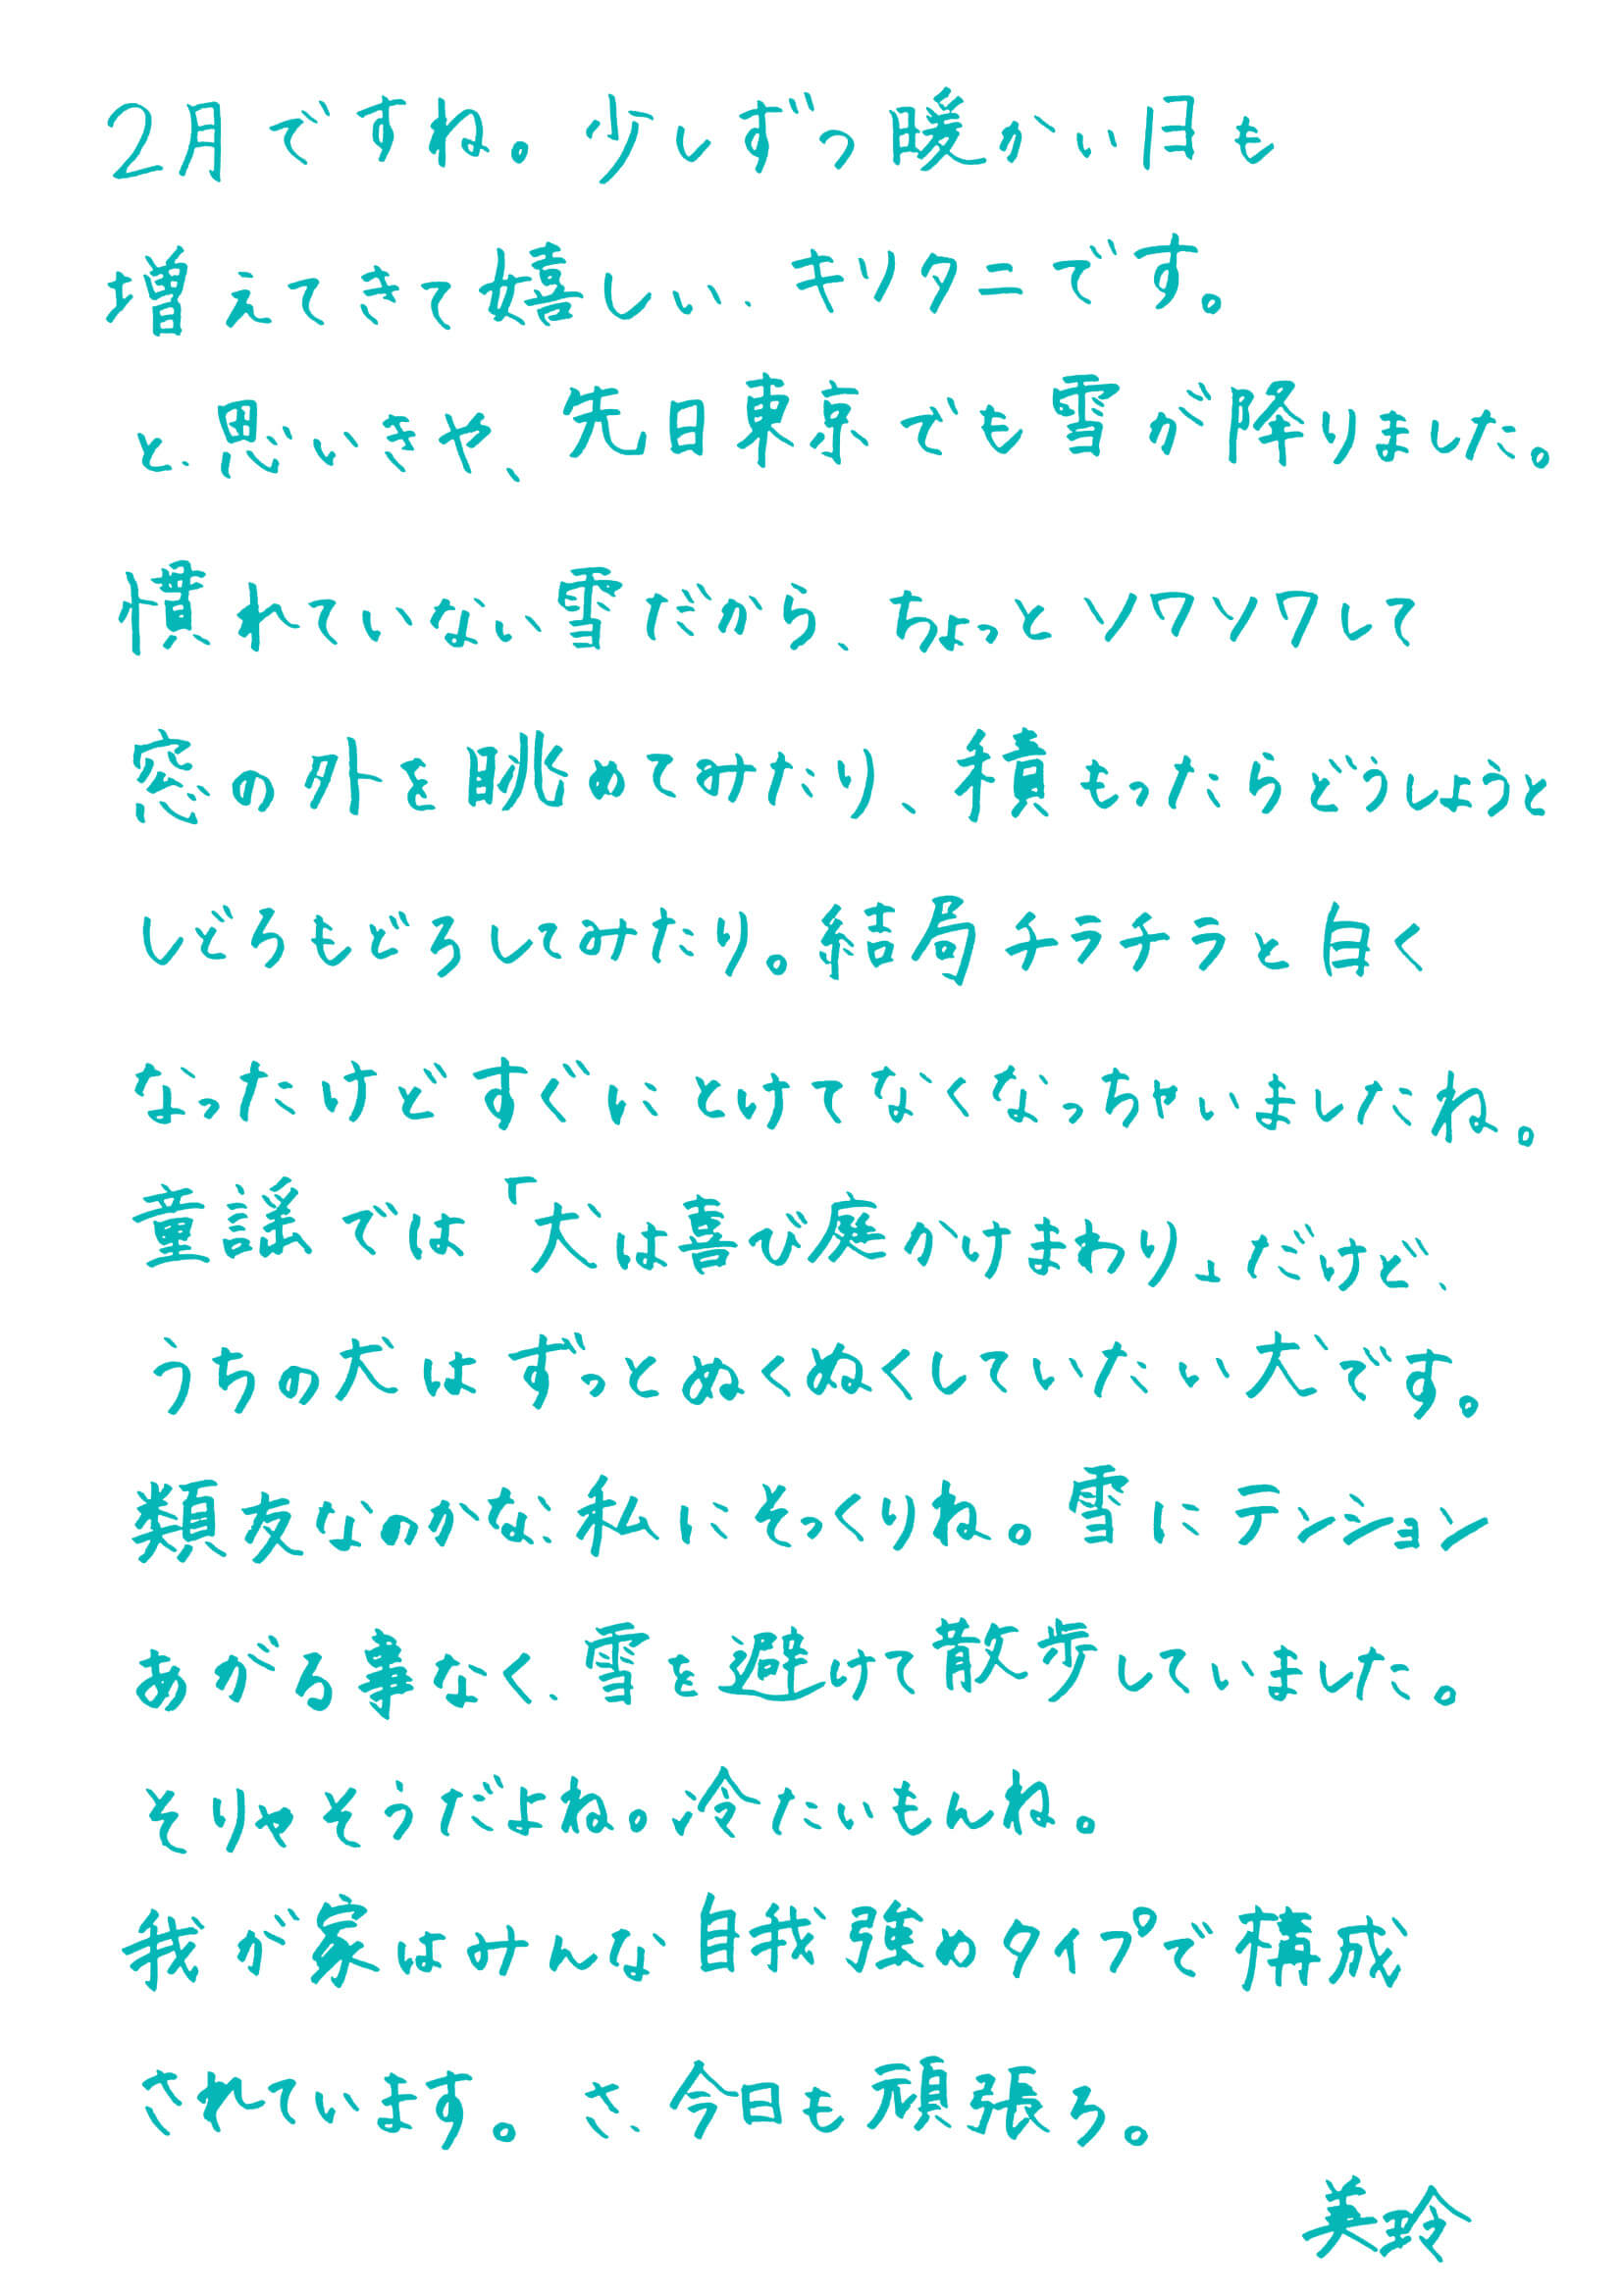 2月ですね。少しずつ暖かい日も
増えてきて嬉しい、キリタニです。
と、思いきや、先日東京でも雪が降りました。
慣れていない雪だから、ちょっとソワソワして
窓の外を眺めてみたり、積もったらどうしようと
しどろもどろしてみたり。結局チラチラと白く
なったけどすぐにとけてなくなっちゃいましたね。
童謡では「犬は喜び庭かけまわり」だけど、
うちの犬はずっとぬくぬくしていたい犬です。
類友なのかな、私にそっくりね。雪にテンション
あがる事なく、雪を避けて散歩していました。
そりゃそうだよね。冷たいもんね。
我が家はみんな自我強めタイプで構成
されています。さ、今日も頑張ろ。
美玲